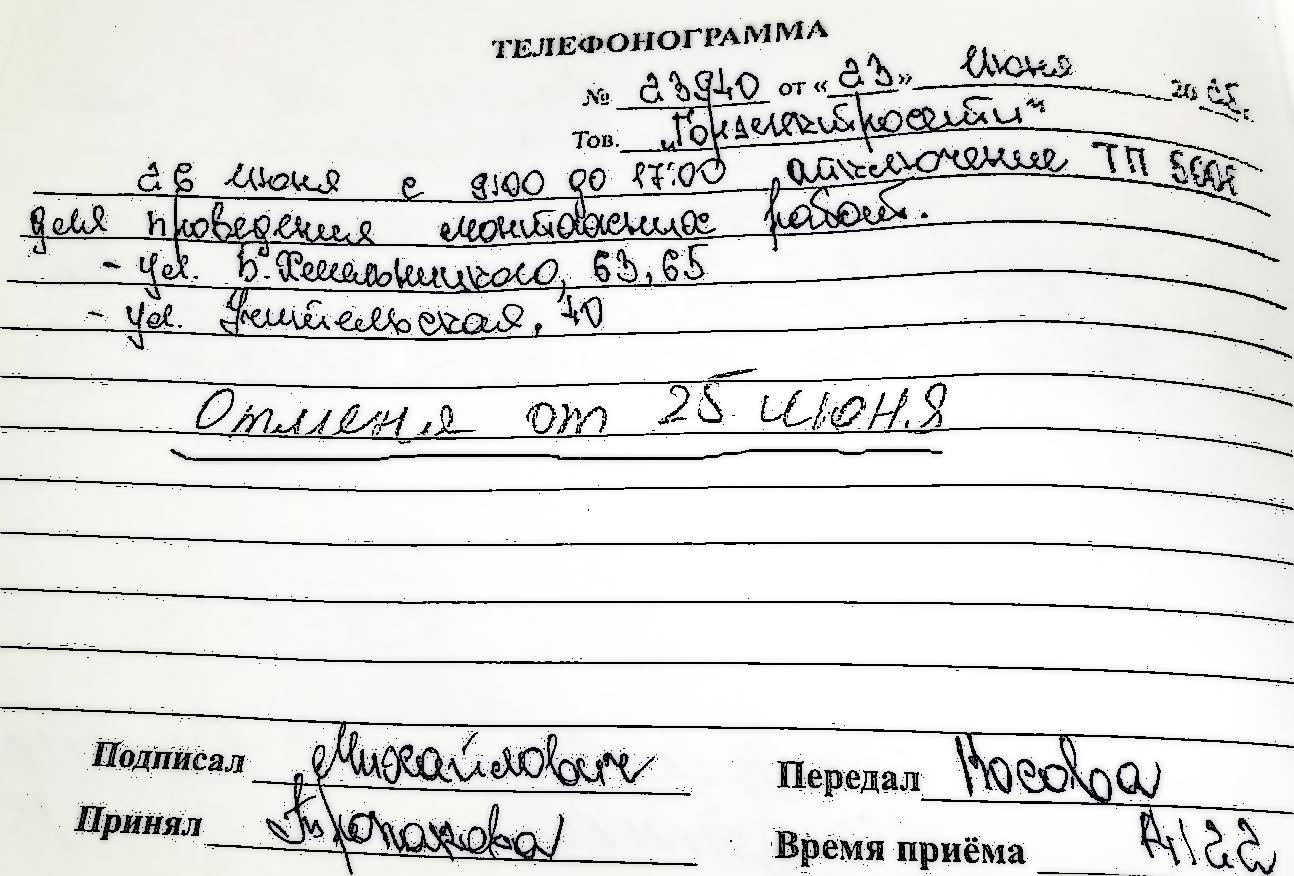 ТЕЛЕФОНОГРАММА
№ 23940 от «23» июня 20
Тов. "Горэлектросети"
26 июня с 9:00 до 17:00 отключение ТП
для проведения монтажных работ.
- ул. Б. Хмельницкого, 63, 65
- ул. Учительская, 40
Отмена от 25 июня
Подписал Михайлович Передал Носова
Принял Время приёма